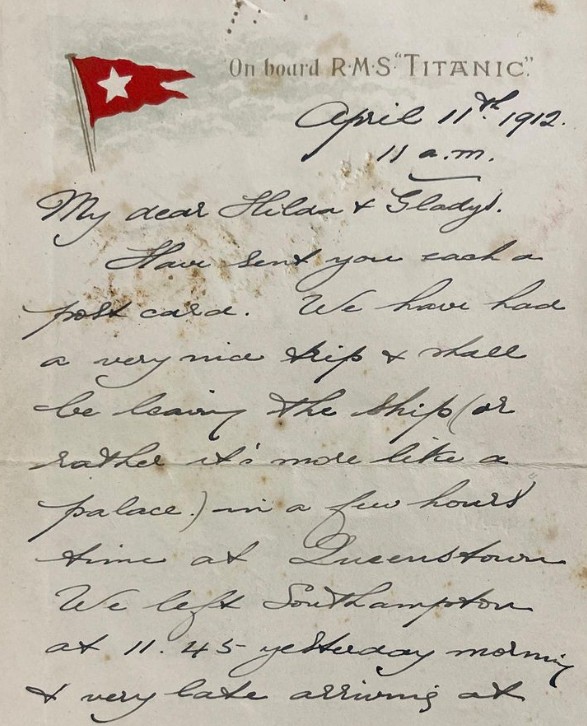 On board R·M·S. "TITANIC".
April 11th. 1912.
11 a.m.
My dear Hilda & Gladys.
Have sent you each a
post card. We have had
a very nice trip & shall
be leaving the ship (or
rather it's more like a
palace.) in a few hours
time at Queenstown
We left Southampton
at 11.45 yesterday morning
& very late arriving at